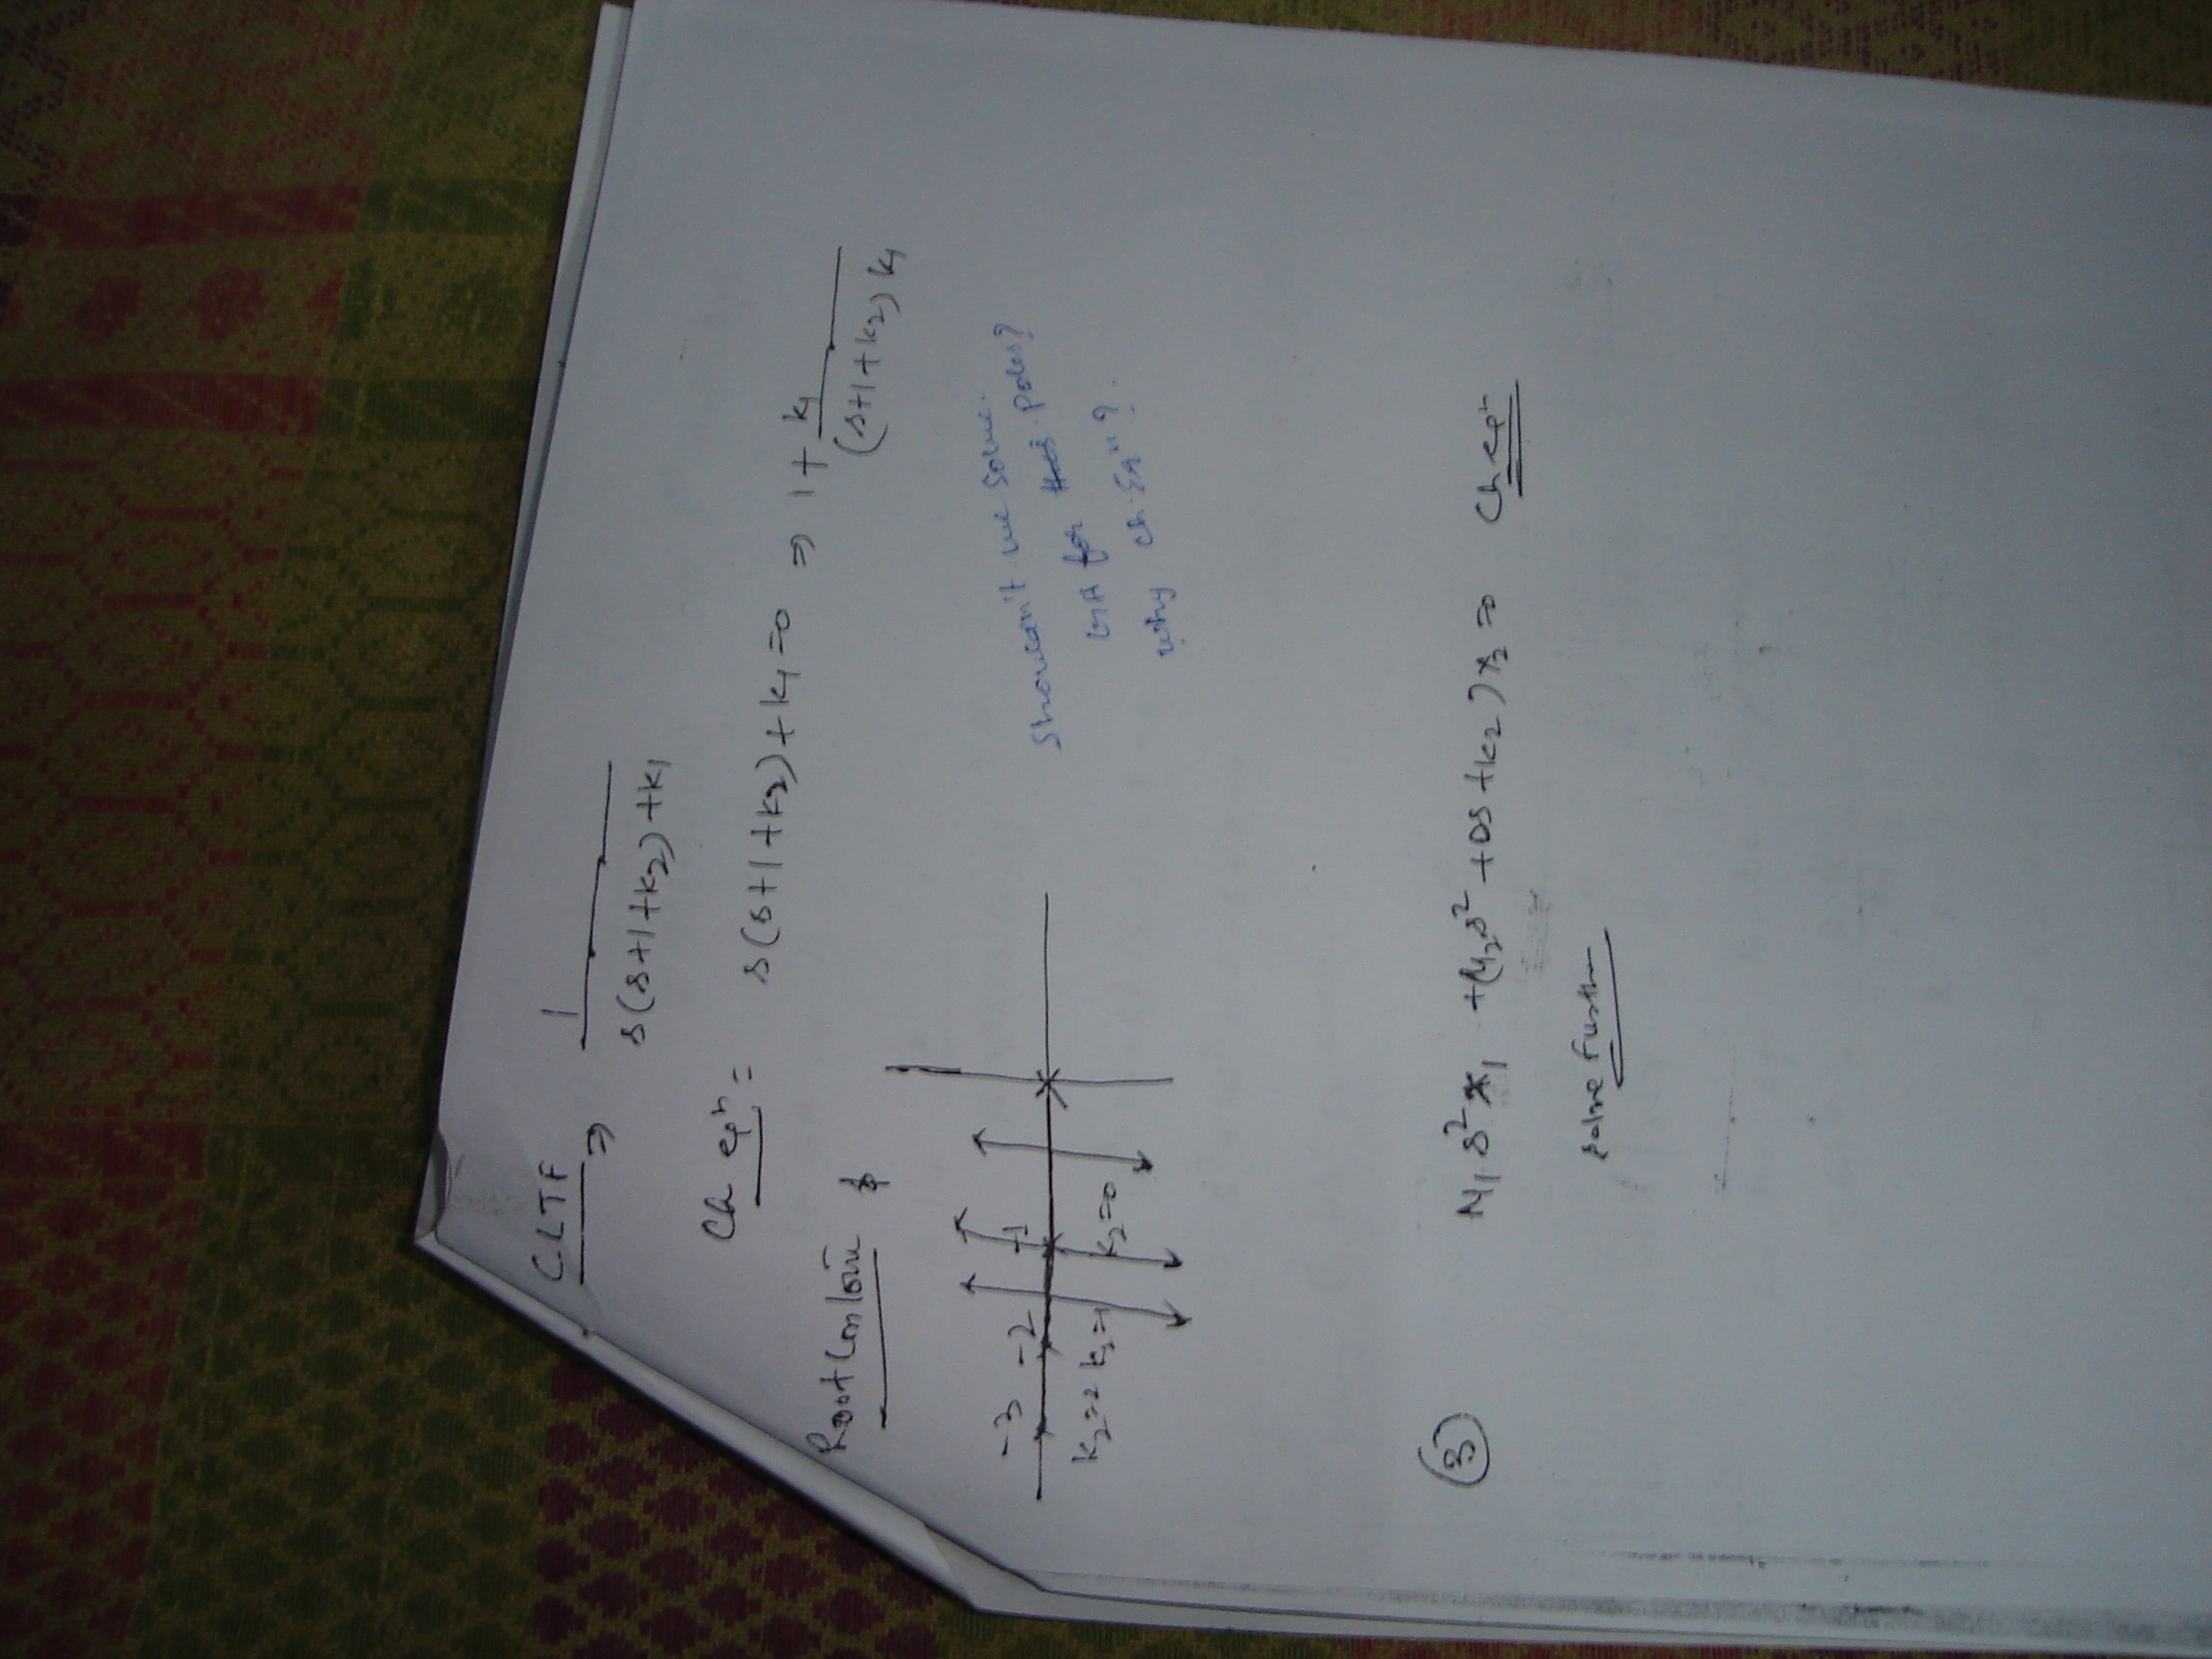 CLTF
⇒ 1
s(s+1+k2)+k1
Ch eqn = s(s+1+k2)+k1=0 ⇒ 1+ k1
(s+1+k2) k1
Root
-3 -2 -1
k2=2 k2=1 k2=0
Shouldn't we solve
GH for poles?
why ch. Eqn?
(3) M1 s² x1 + (M2s² + Ds + k2) x2 = 0 Ch eqn
solve further